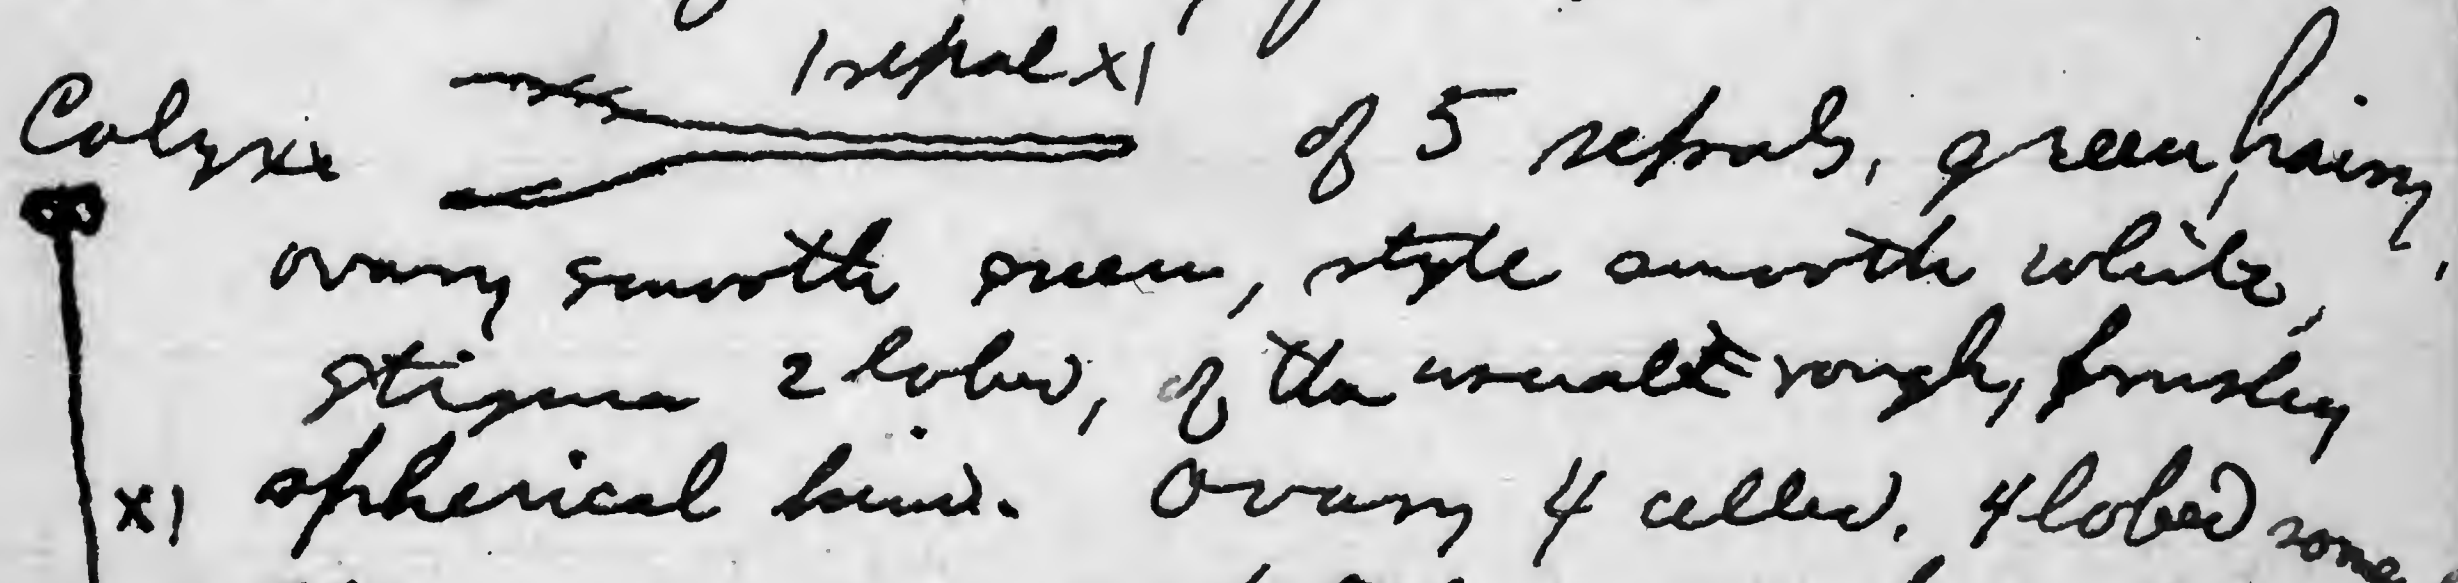 1 sepal x1
Calyx of 5 sepals, green, hairy,
ovary smooth green, style smooth white,
stigma 2 lobed, of the usual rough, brushy
x1 spherical kind. Ovary 4 celled. 4 lobed some